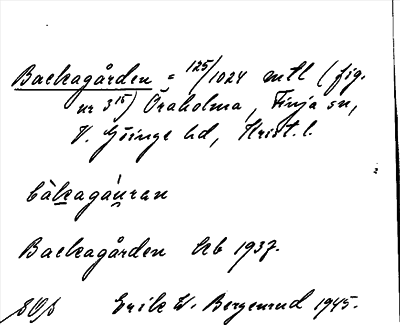 Backagården = 125/1024 mtl (fig.
nr 3¹⁵) Öraholma, Finja sn,
V. Göinge hd, Krist. l.
bàkagáu̯ran
Backagården kb 1937.
Erik W. Bergenrud 1945.